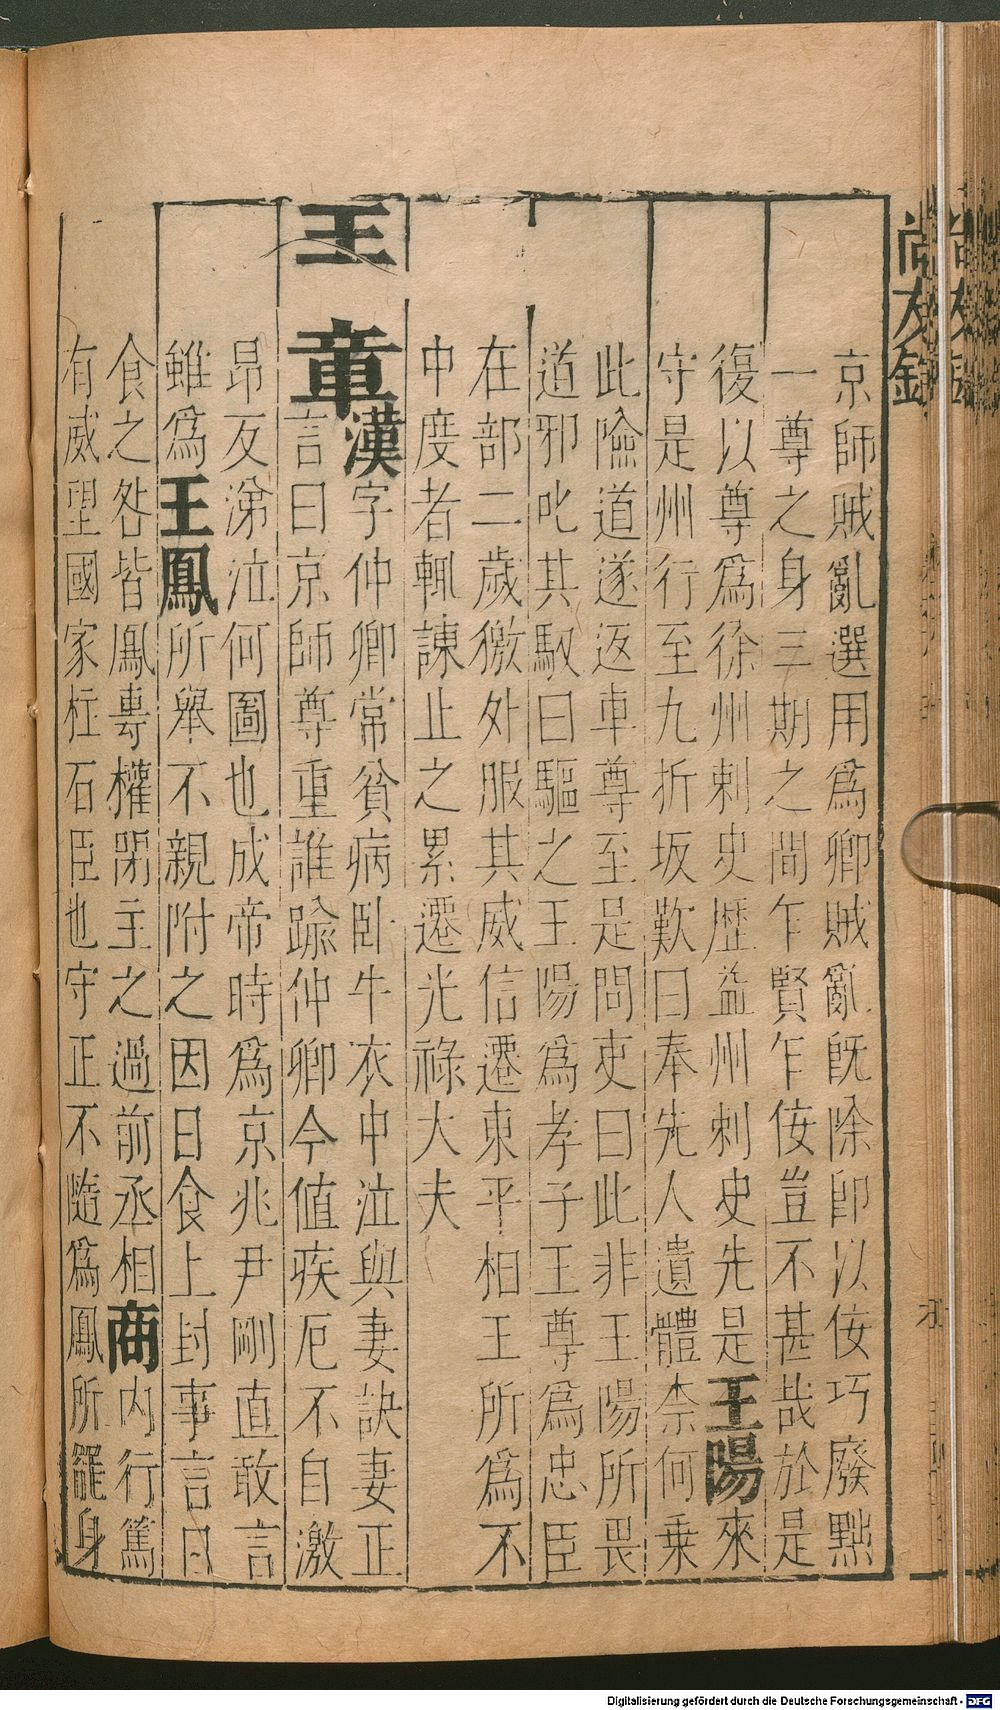 尚友錄
京師賊亂選用爲卿賊亂既除即以佞巧廢黜
一尊之身三期之間乍賢乍佞豈不甚哉於是
復以尊爲徐州刺史歷益州刺史先是王陽來
守是州行至九折坂歎曰奉先人遺體柰何乗
此險道遂返車尊至是問吏曰此非王陽所畏
道邪叱其馭曰驅之王陽爲孝子王尊爲忠臣
在部二歲徼外服其威信遷東平相王所爲不
中度者輒諫止之累遷光祿大夫
王章
漢字仲卿常貧病臥牛衣中泣與妻訣妻正
言曰京師尊重誰踰仲卿今值疾厄不自激
昂反涕泣何圖也成帝時爲京兆尹剛直敢言
雖爲王鳳所舉不親附之因日食上封事言日
食之咎皆鳳專權閉主之過前丞相商內行篤
有威望國家柱石臣也守正不隨爲鳳所罷身
Digitalisierung gefördert durch die Deutsche Forschungsgemeinschaft - DFG